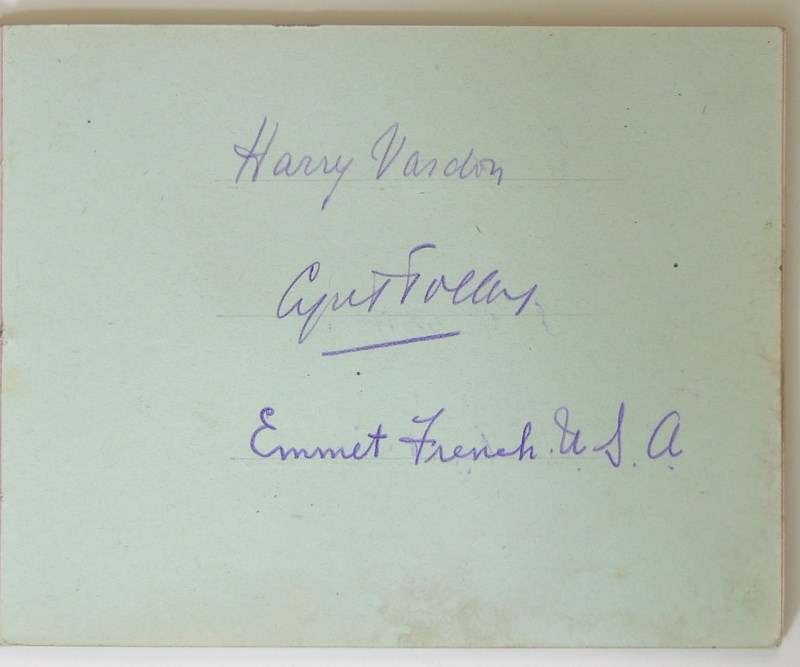 Harry Vardon
Cyril Tolley
Emmet French. U. S. A.